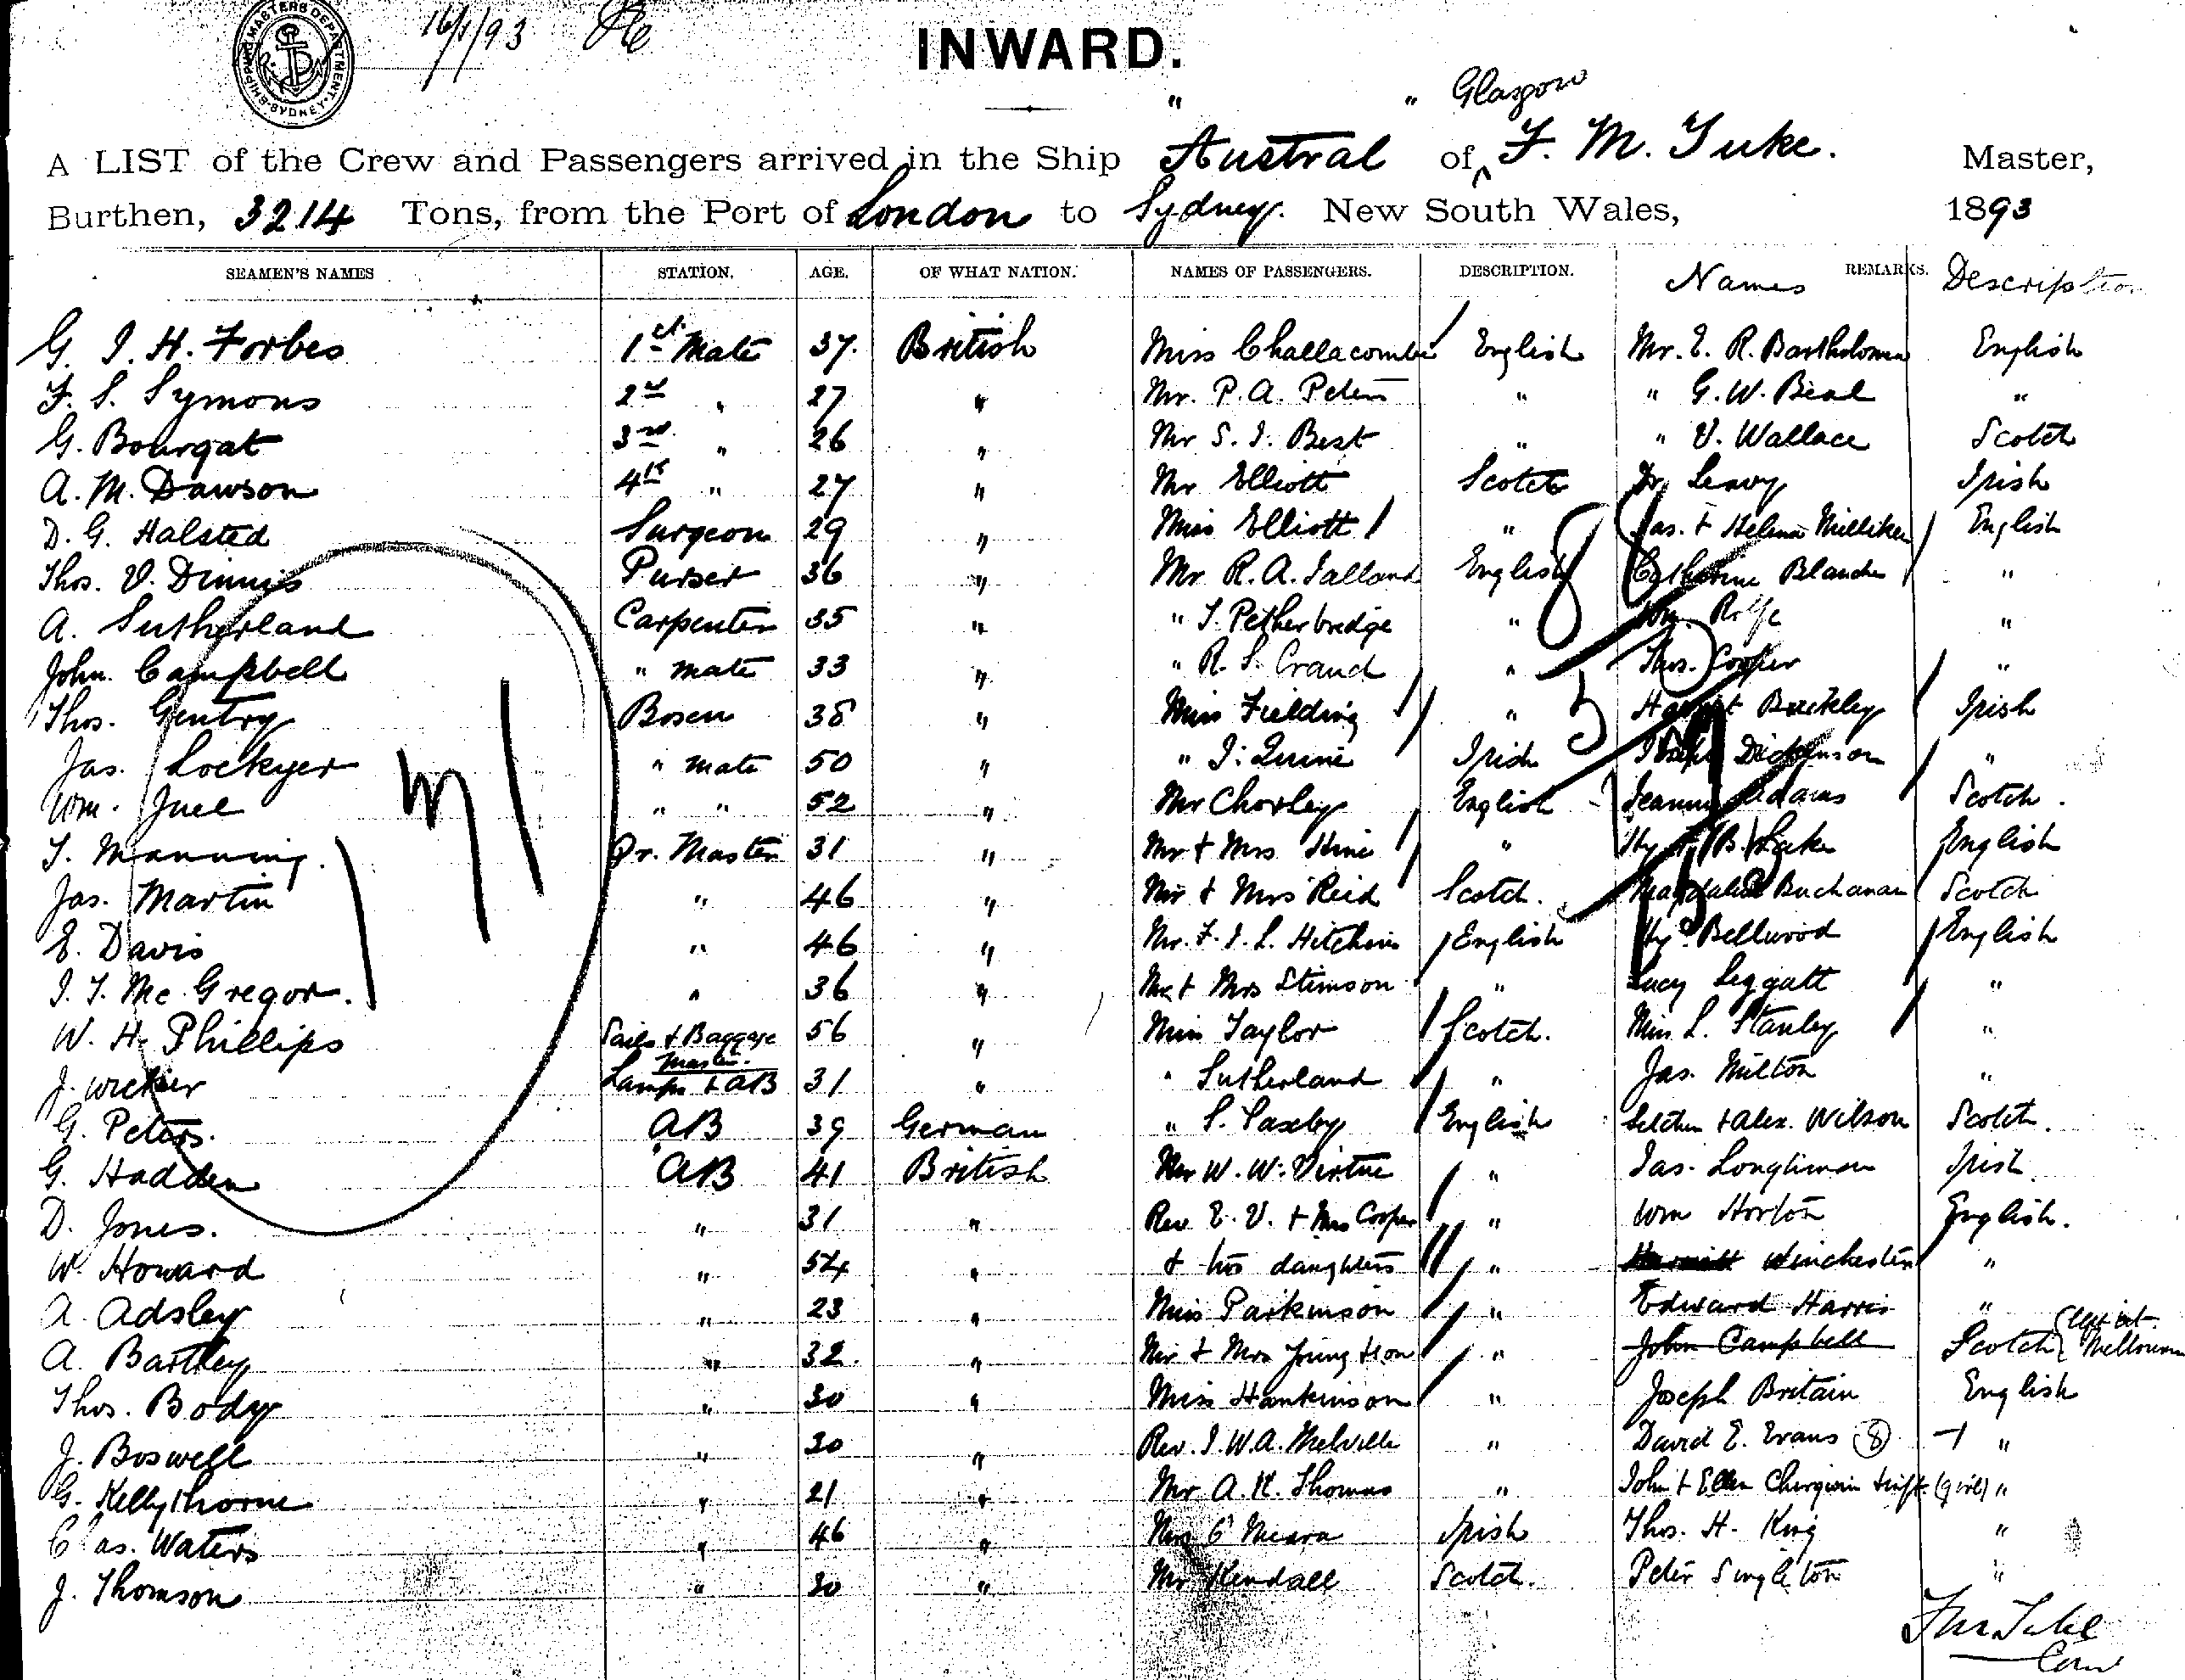 SHIPPING MASTERS DEPARTMENT SYDNEY
16/1/93
INWARD.
" " Glasgow
A LIST of the Crew and Passengers arrived in the Ship Austral of F. M. Tuke. Master,
Burthen, 3214 Tons, from the Port of London to Sydney. New South Wales, 1893
SEAMEN'S NAMES STATION. AGE. OF WHAT NATION. NAMES OF PASSENGERS. DESCRIPTION. Names REMARKS. Description
G. I. H. Forbes 1st Mate 37. British Miss Challacombe English Mr. E. R. Bartholomew English
F. S. Symons 2nd " 27 " Mr. P. A. Peters " " G. W. Beal "
G. Bourgat 3rd " 26 " Mr S. I. Best " " V. Wallace Scotch
A. M. Dawson 4th " 27 " Mr Elliott Scotch Dr Leavy Irish
D. G. Halsted Surgeon 29 " Miss Elliott " Jas. + Helena Milliken English
Thos. V. Dinnis Purser 36 " Mr R. A. Salland English Catherine Blanche "
A. Sutherland Carpenter 35 " " T. Petherbridge " Rolfe "
John Campbell " Mate 33 " " R. S. Craud " Thos. Cooper "
Thos. Gentry Bosen 38 " Miss Fielding " Buckley Irish
Jas. Lockyer " Mate 50 " " I. Quine Irish Dickenson "
Wm. Juel " " 52 " Mr Chorley English Adams Scotch.
T. Manning. Qr. Master 31 " Mr + Mrs Hine " Hy Lake English
Jas. Martin " 46 " Mr + Mrs Reid Scotch. Buchanan Scotch
E. Davis " 46 " Mr. F. I. L. Hitchins English Hy. Bellwood English
I. T. McGregor. " 36 " Mr + Mrs Stimson " Lucy Leggatt "
W. H. Phillips Sails + Baggage Master. 56 " Miss Taylor Scotch. Miss L. Stanley "
J. Lamps + AB 31 " " Sutherland " Jas. Milton "
G. Peters. AB 39 German " S. Saxby English + Alex. Wilson Scotch.
G. Hadden AB 41 British Mr W. W. Virtue " Jas. Longhman Irish
D. Jones. " 31 " Rev E. V. + Mrs Cooper " Wm Horton English.
W. Howard " 54 " + two daughters " Winchester "
A. Adsley " 23 " Miss Parkinson " Edward Harris "
A. Bartley " 32. " Mr + Mrs Young + son " John Campbell Scotch (left at Melbourne
Thos. Body " 30 " Miss Hankinson " Joseph Britain English
J. Boswell " 30 " Rev. I. W. A. Melville " David E. Evans (8) "
G. Kellythorne " 21 " Mr A. K. Thomas " John + Ellen Chergwin + inft. (girl) "
Chas. Waters " 46 " Mrs O'Meara Irish Thos. H. King "
J. Thomson " 30 " Mr Kendall Scotch. Peter Singleton "
F M Tuke
Com